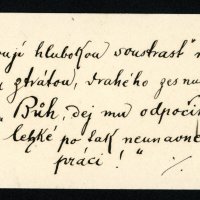 ují hlubokou soustrast "
ztrátou, drahého zesnu
"Bůh, dej mu odpočin
lehké po tak neunavné
práci!"